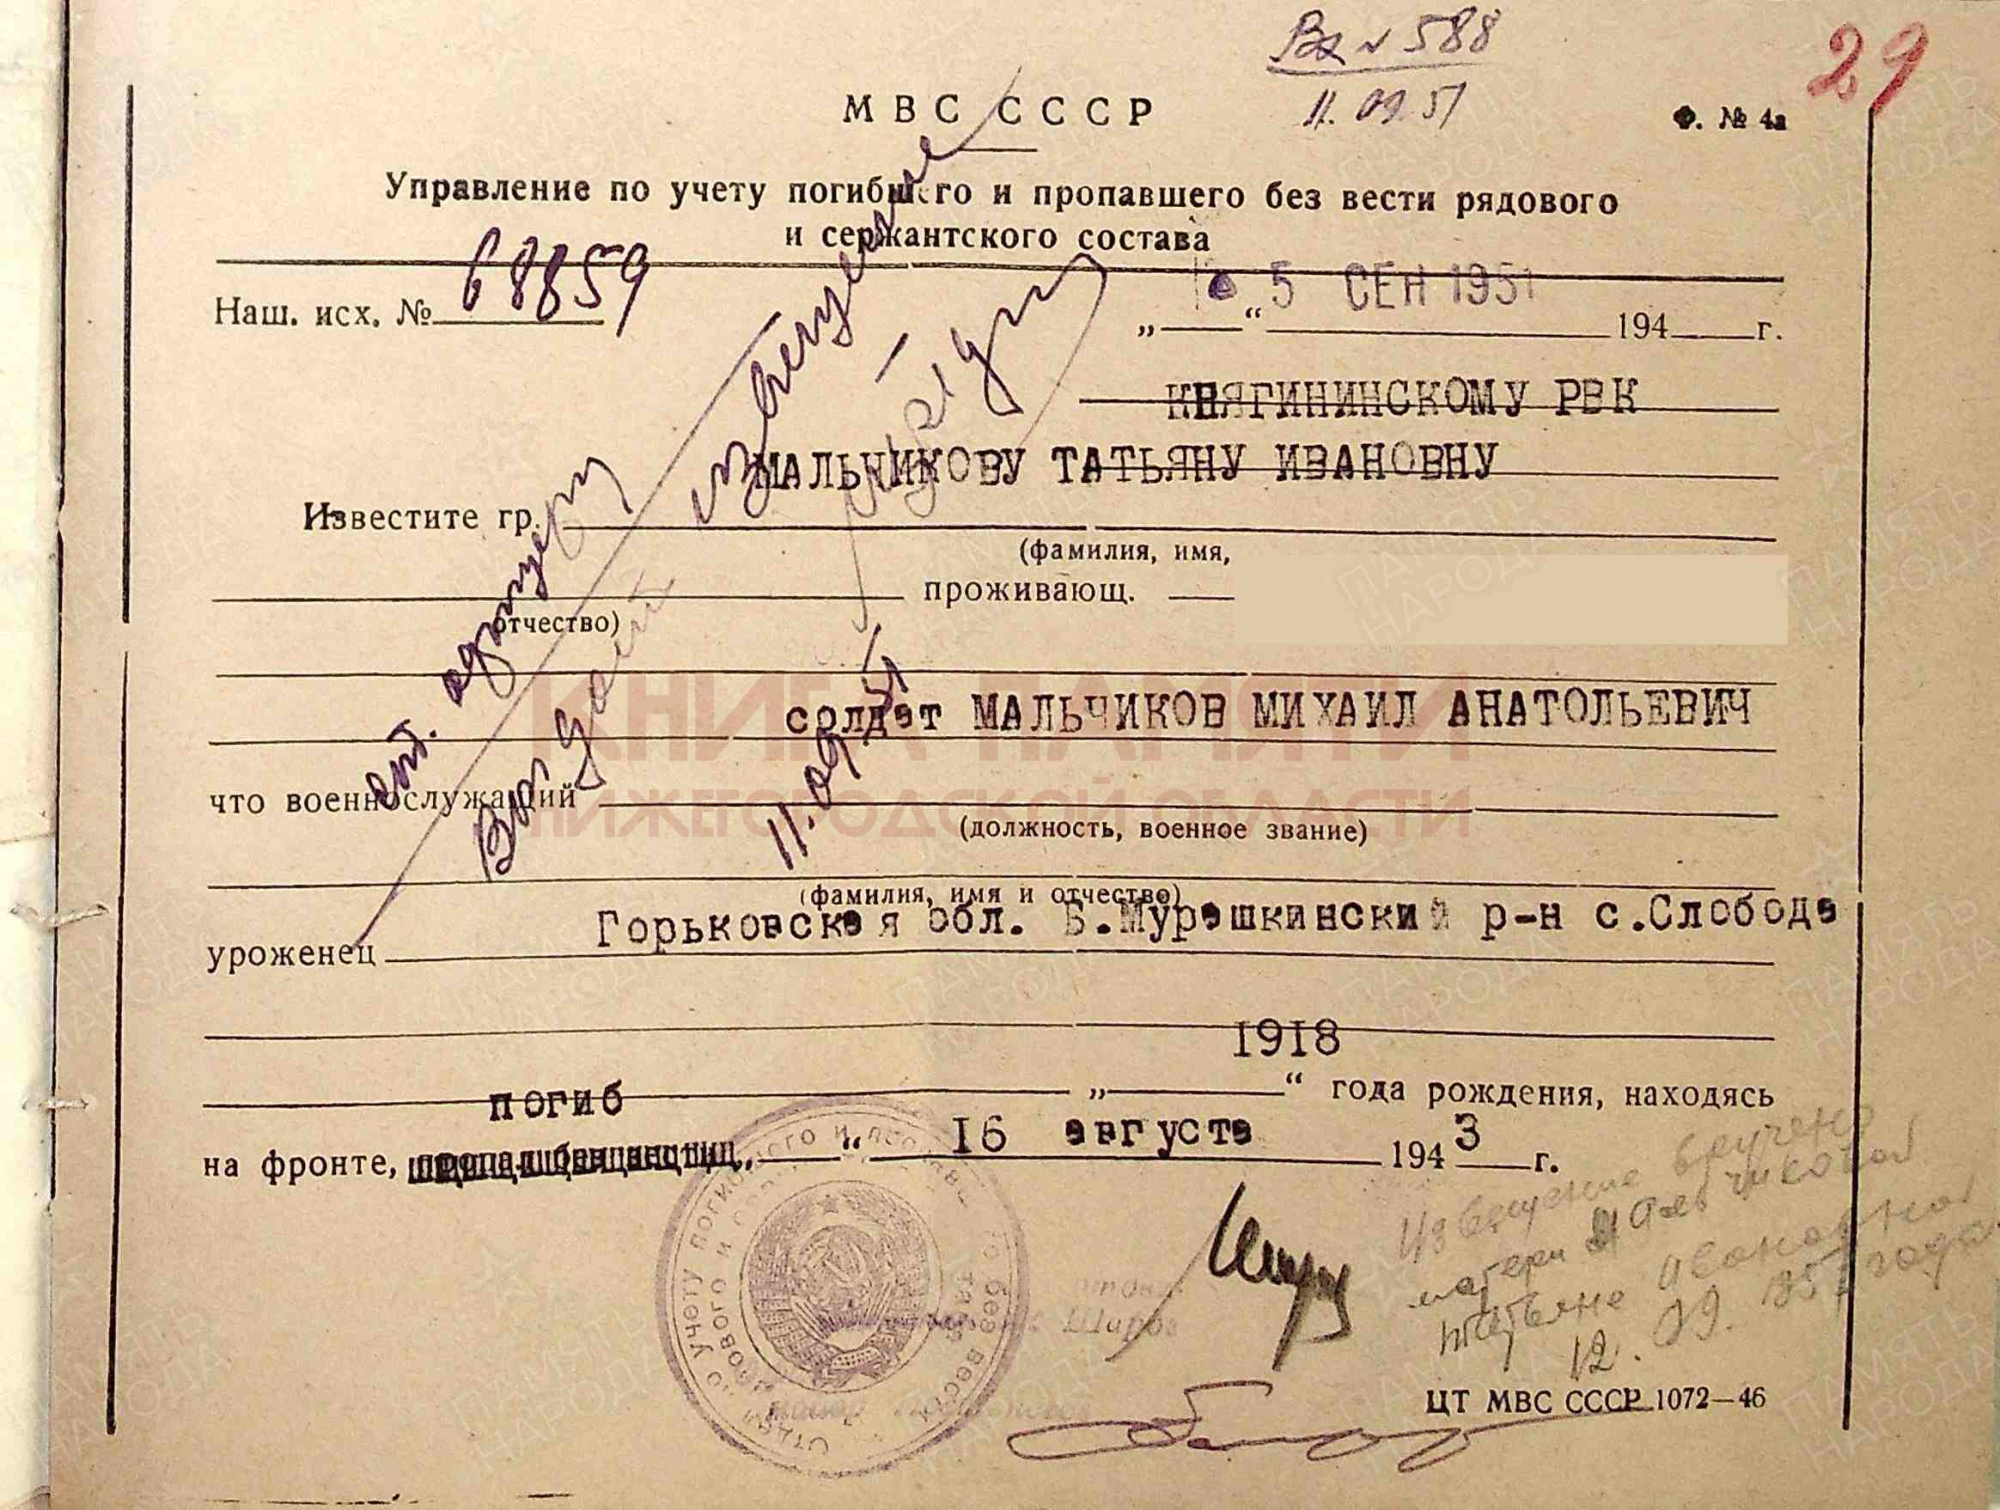 Вх № 588
11.09.51
29
МВС СССР
Ф. № 4а
Управление по учету погибшего и пропавшего без вести рядового
и сержантского состава
Наш. исх. № 68859
5 СЕН 1951
„ “ 194 г.
КНЯГИНИНСКОМУ РВК
МАЛЬЧИКОВУ ТАТЬЯНУ ИВАНОВНУ
Известите гр.
(фамилия, имя,
проживающ.
отчество)
солдат МАЛЬЧИКОВ МИХАИЛ АНАТОЛЬЕВИЧ
что военнослужащий
(должность, военное звание)
(фамилия, имя и отчество)
Горьковская обл. Б.Мурашкинский р-н с.Слобода
уроженец
1918
„ “ года рождения, находясь
погиб
на фронте, „ “ 16 августа 1943 г.
извещение
11.09.51
Извещение вручено
матери Мальчиковой
Татьяне Ивановной
12.09.1951 года
Широв
ЦТ МВС СССР 1072—46
КНИГА ПАМЯТИ
НИЖЕГОРОДСКОЙ ОБЛАСТИ
ПАМЯТЬ
НАРОДА